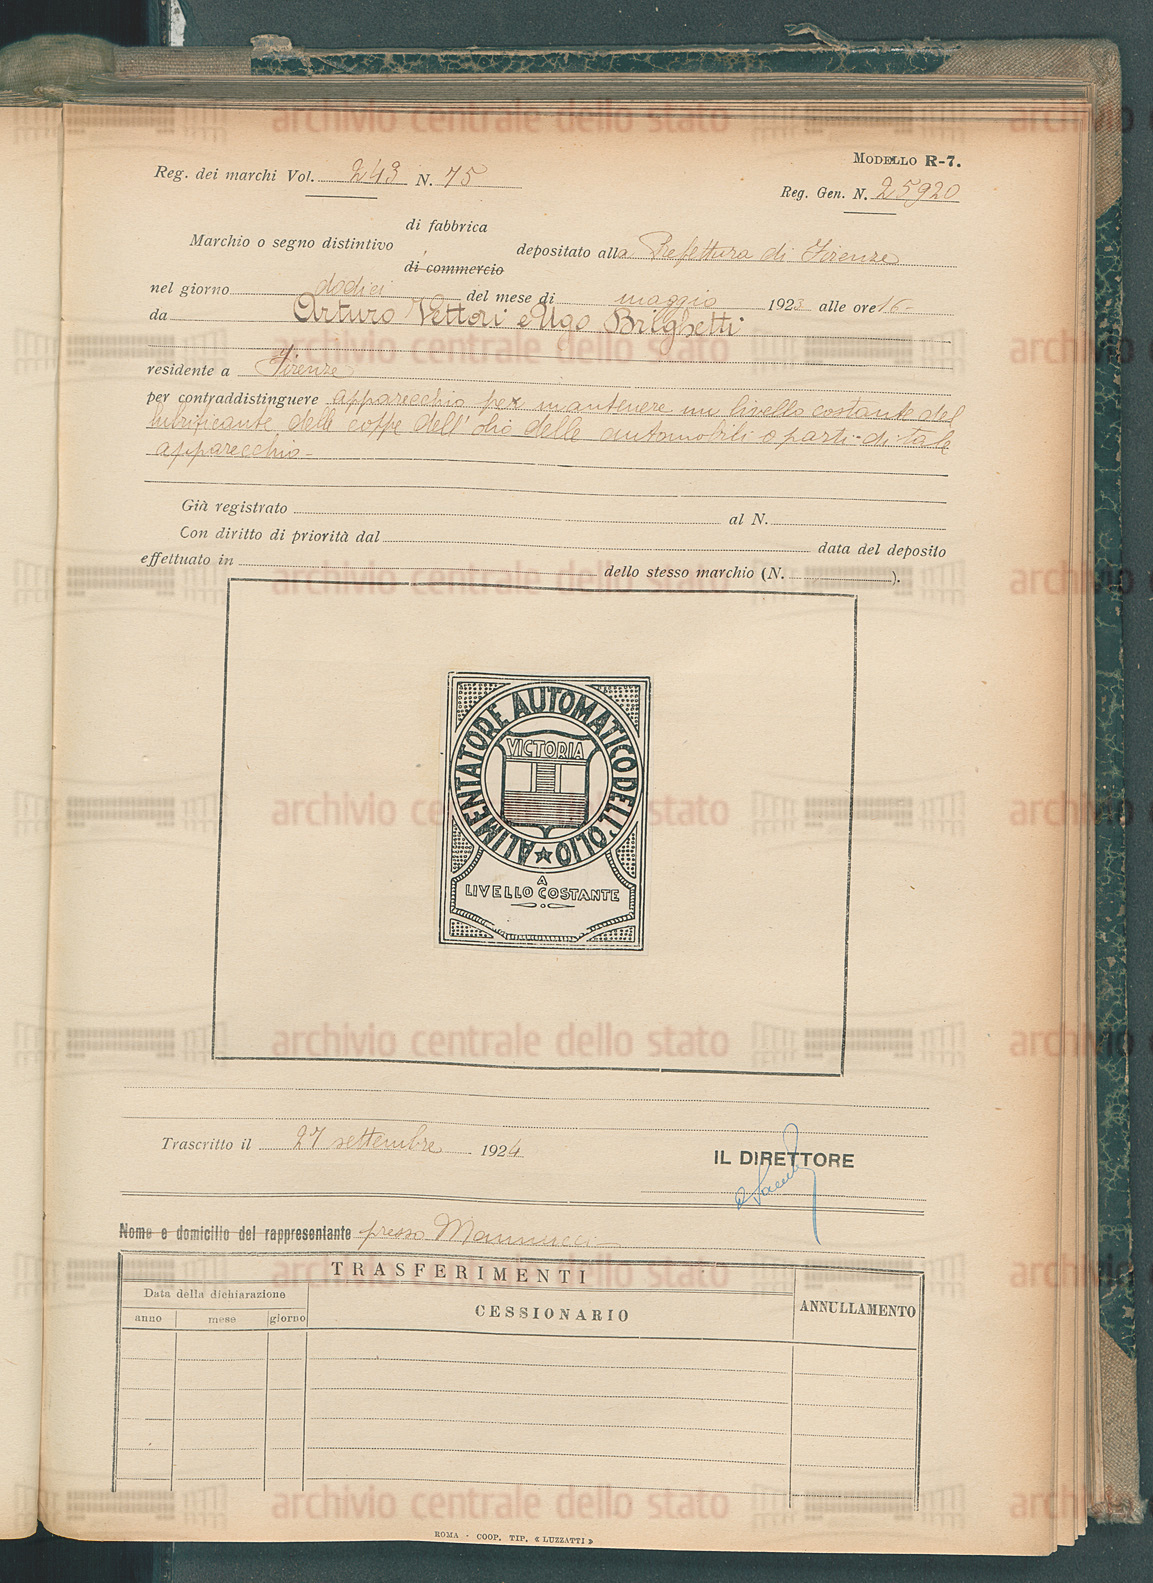 MODELLO R-7.
Reg. dei marchi Vol. 243 N. 75
Reg. Gen. N. 25920
di fabbrica
Marchio o segno distintivo depositato alla Prefettura di Firenze
di commercio
nel giorno dodici del mese di maggio 1923 alle ore 16-
da Arturo Vettori e Ugo Brilghetti
residente a Firenze
per contraddistinguere apparecchio per mantenere un livello costante del
lubrificante delle coppe dell'olio delle automobili o parti di tale
apparecchio-
Già registrato al N.
Con diritto di priorità dal data del deposito
effettuato in dello stesso marchio (N. ).
ALIMENTATORE AUTOMATICO DELL'OLIO
VICTORIA
A
LIVELLO COSTANTE
Trascritto il 27 settembre 1924
IL DIRETTORE
Nome e domicilio del rappresentante presso Mannucci
TRASFERIMENTI
Data della dichiarazione
CESSIONARIO
ANNULLAMENTO
anno mese giorno
ROMA - COOP. TIP. « LUZZATTI »
archivio centrale dello stato
archivio centrale dello stato
archivio centrale dello stato
archivio centrale dello stato
archivio centrale dello stato
archivio centrale dello stato
archivio centrale dello stato